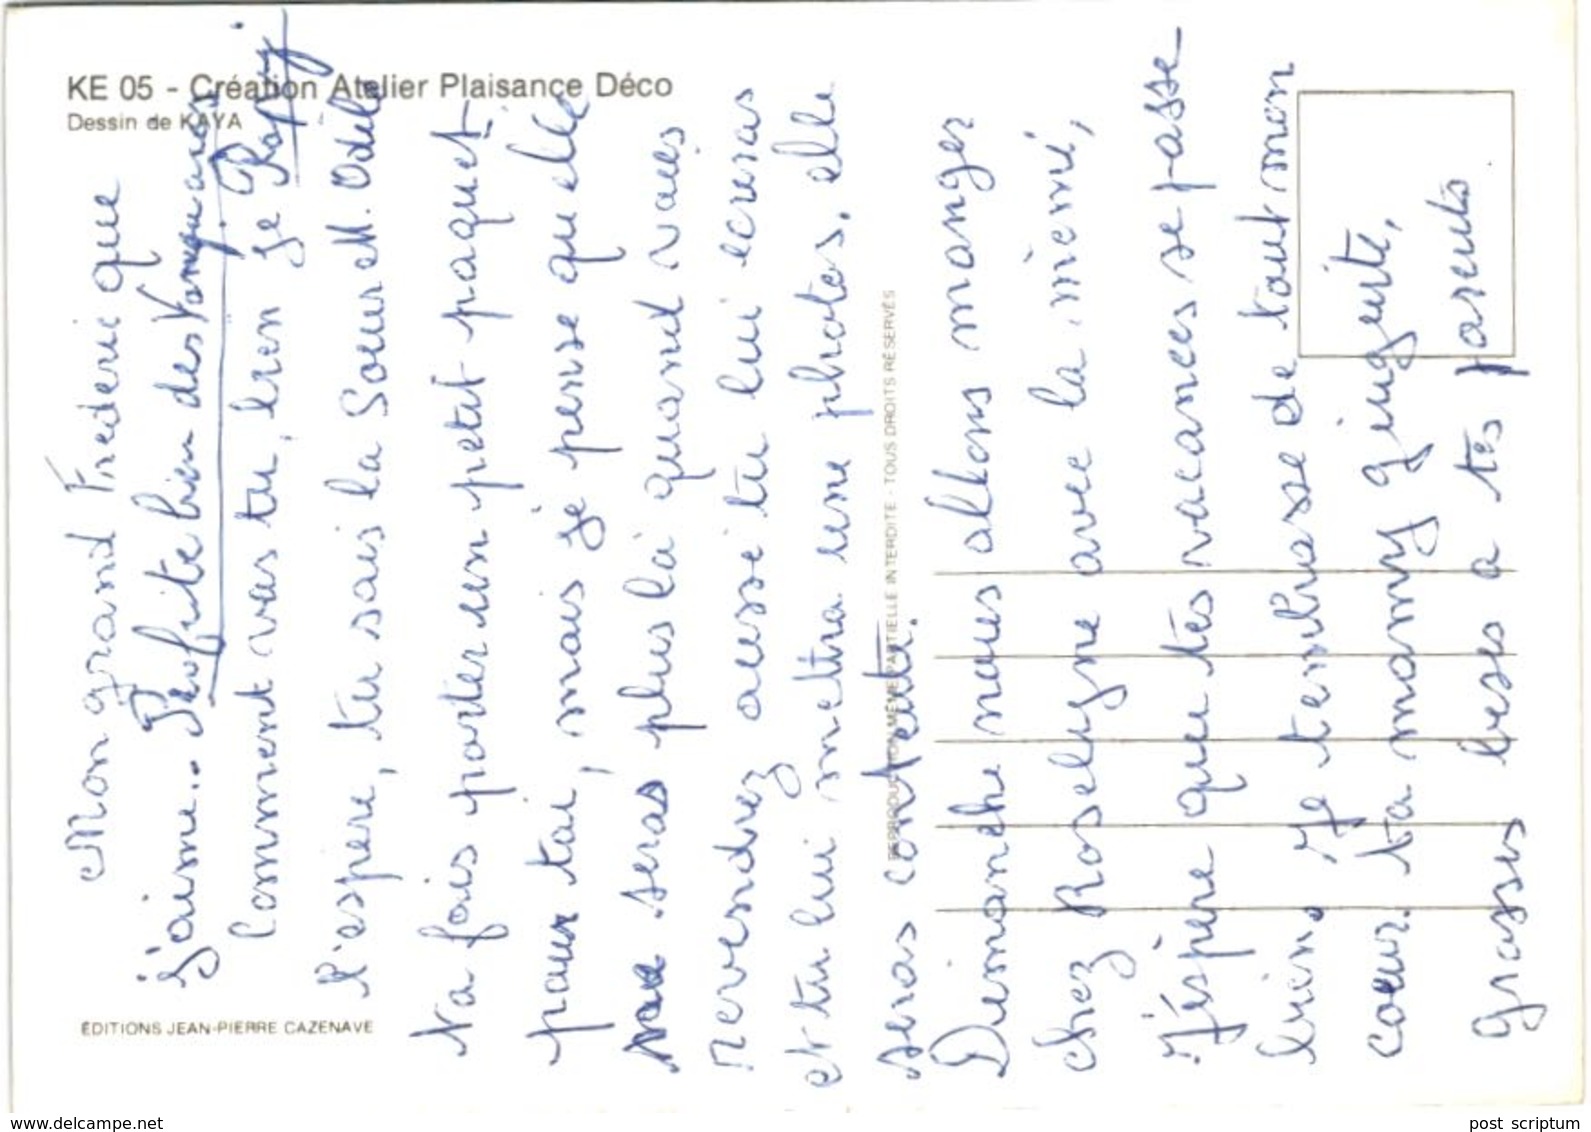 KE 05 - Création Atelier Plaisance Déco
Dessin de KAYA
Mon grand Frederic que
j'aime.. Profite bien des Vacances
Comment vas tu, bien je
l'espère, tu sais la Soeur M. Odile
Va fois porter un petit paquet
pour toi, mais je pense qu elle
seras plus là quand vous
revendrez aussi tu lui ecriras
et tu lui mettra une photos, elle
seras contente.
Dimanche nous allons manger
chez Roselyne avec la mémé,
J'éspère que tes vacances se passe
bien, Je t'embrasse de tout mon
coeur. Ta mamy ginguite,
grosses bises a tes parents
Papy
ÉDITIONS JEAN-PIERRE CAZENAVE
REPRODUCTION MÊME PARTIELLE INTERDITE - TOUS DROITS RÉSERVÉS
www.delcampe.net
post scriptum